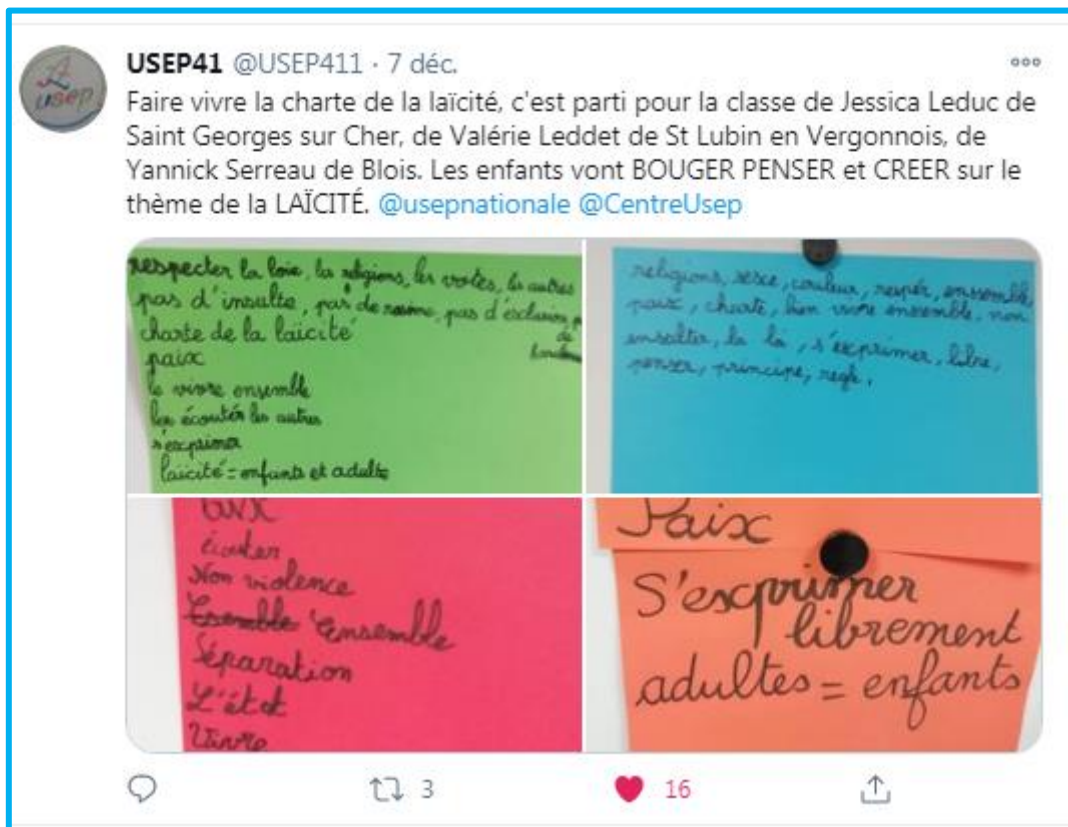 USEP41 @USEP411 · 7 déc.
Faire vivre la charte de la laïcité, c'est parti pour la classe de Jessica Leduc de
Saint Georges sur Cher, de Valérie Leddet de St Lubin en Vergonnois, de
Yannick Serreau de Blois. Les enfants vont BOUGER PENSER et CREER sur le
thème de la LAÏCITÉ. @usepnationale @CentreUsep
respecter la loie, la religions, les votes, les autres
pas d'insulte, pas de racisme, pas d'exclusion,
de
charte de la laicité
paix
le vivre ensemble
les écoutér les autres
s'exprimer
laicité = enfants et adulte
religions, sexe, couleur, respér, ensemble
paix, charte, bien vivre ensemble, non
ensulter, la loi, s'éxprimer, libre,
penser, principe, regle,
écouter
Non violence
Ensemble
Séparation
L'état
Vivre
Paix
S'exprimer
librement
adultes = enfants
3
16